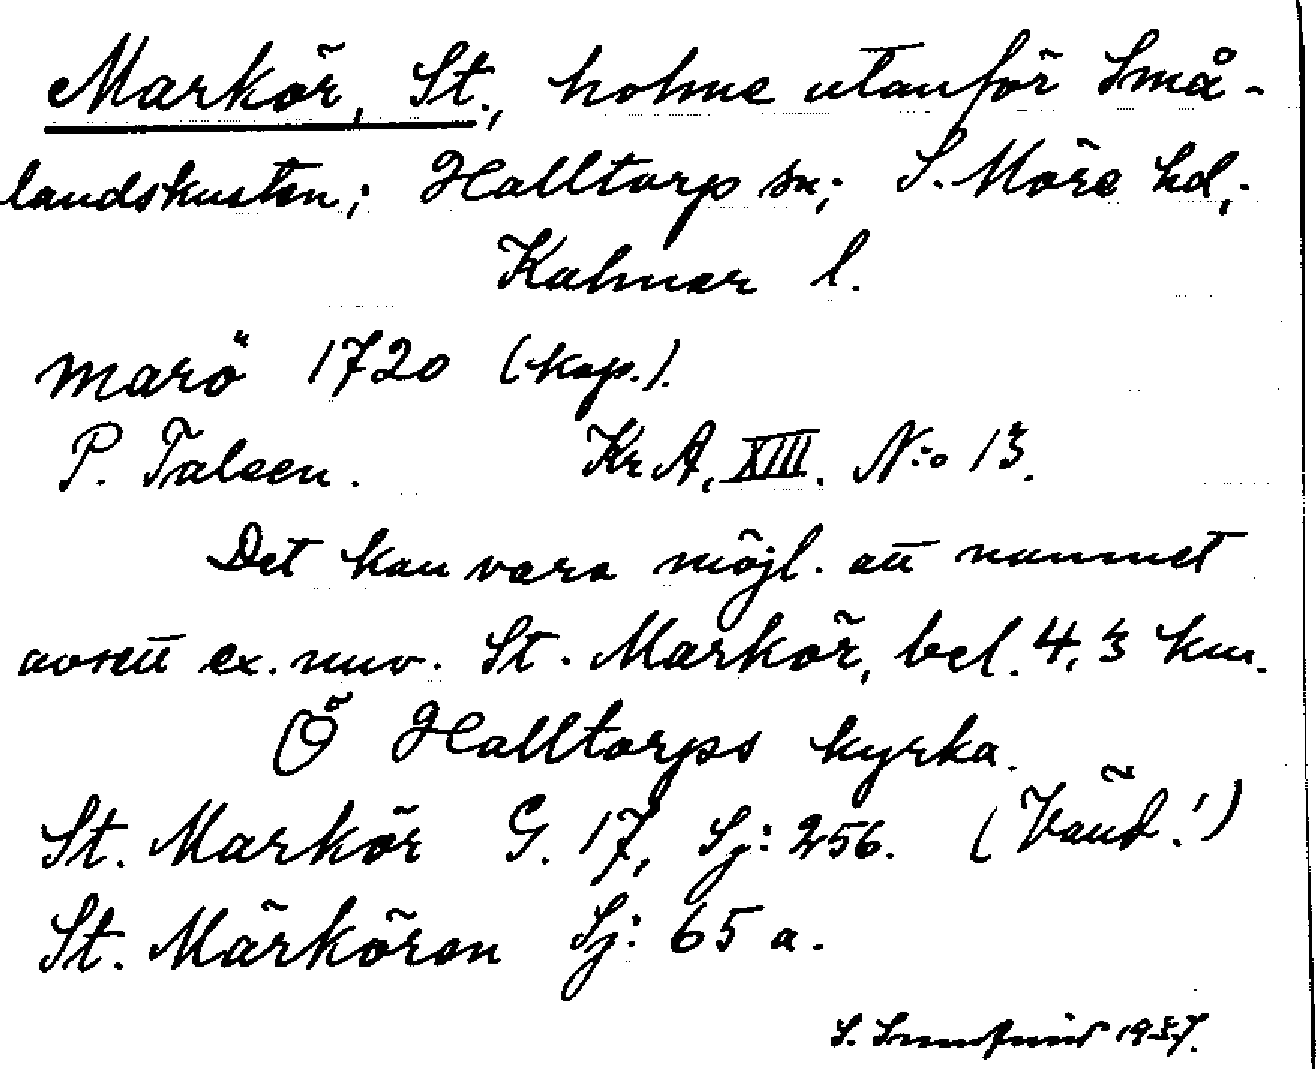 Markör, St., holme utanför Små-
landskusten; Halltorp sn; S. Möre hd,.
Kalmar l.
marö 1720 (kop.).
P. Talsen. Kr A, XIII. N:o 13.
Det kan vara möjl. att namnet
avsett ex. nuv. St. Markör, bel. 4,3 km.
Ö Halltorps kyrka.
St. Markör G. 17, Sj: 256. (Vänd!)
St. Märkören Sj: 65 a.
S. 1937.